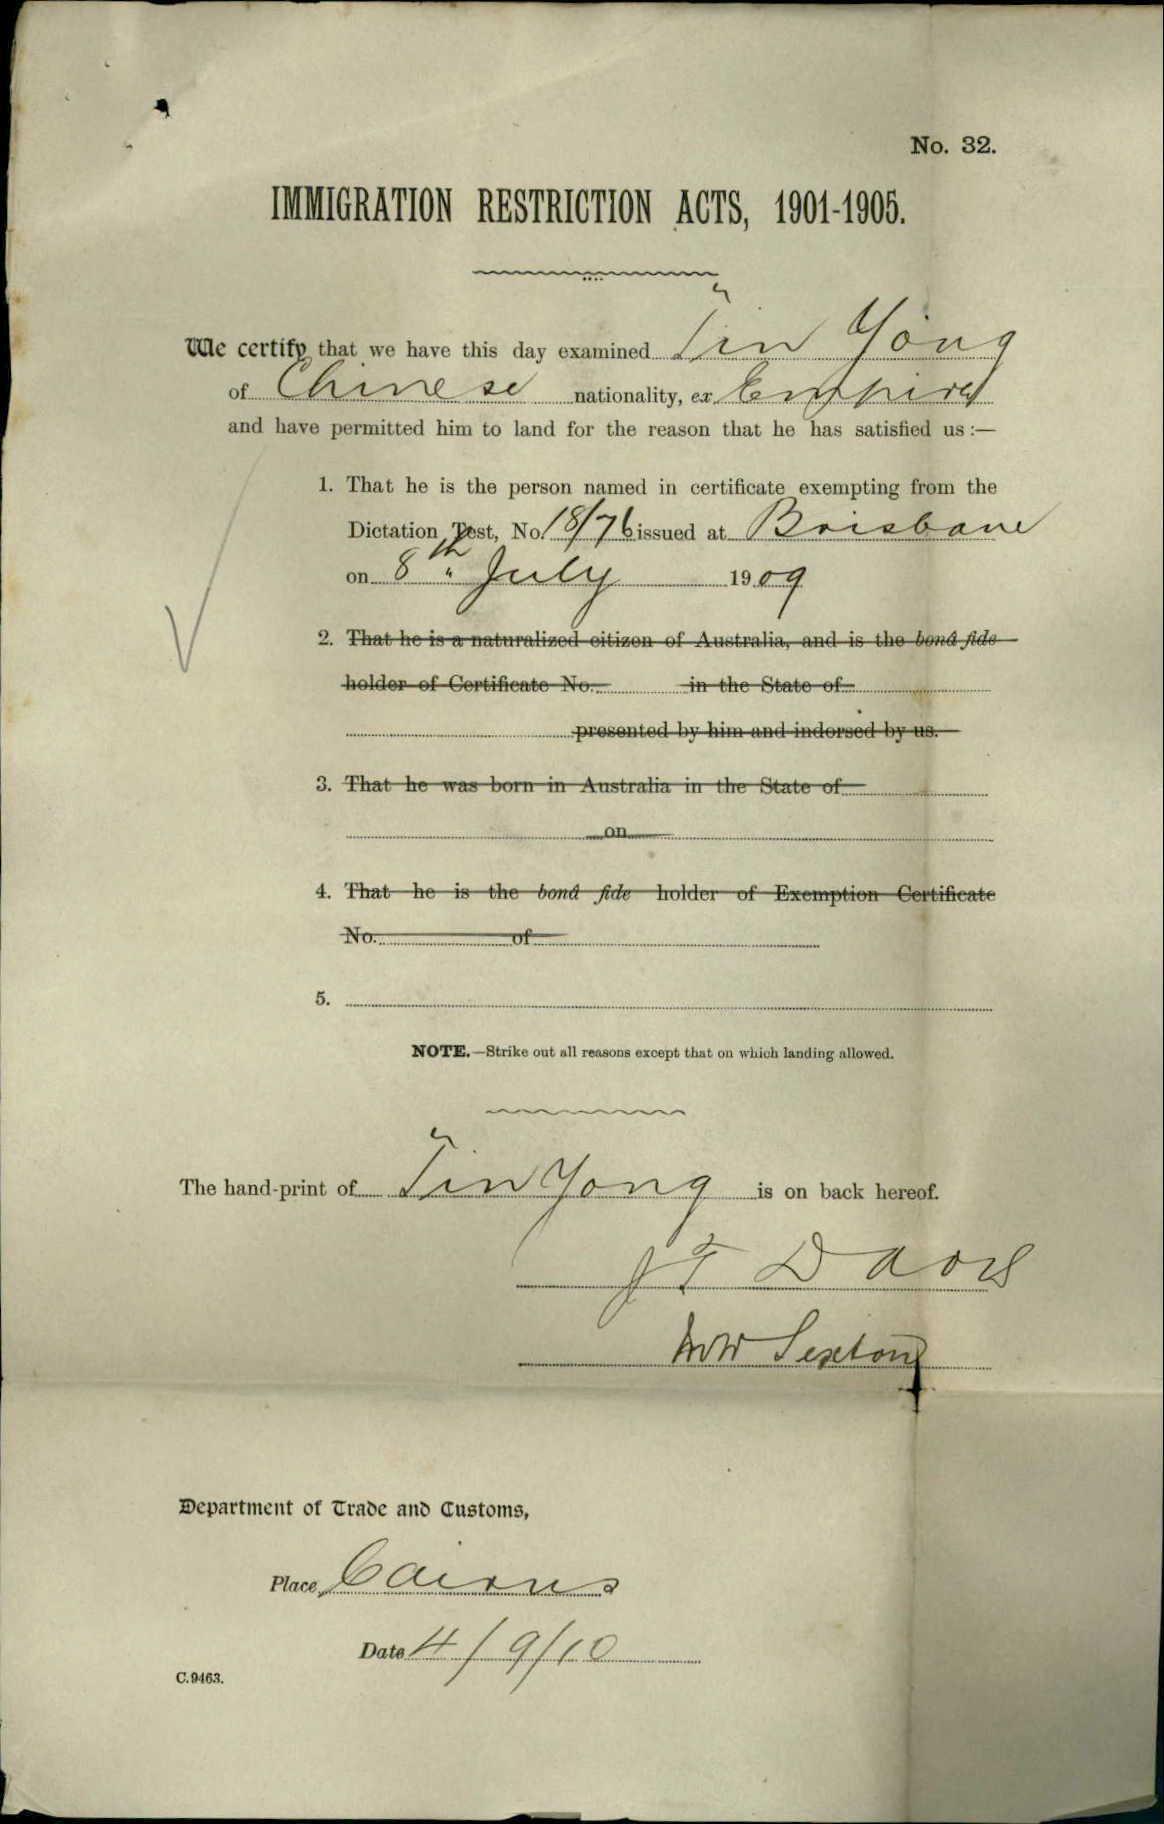 No. 32.
IMMIGRATION RESTRICTION ACTS, 1901-1905.
We certify that we have this day examined Tin Yong
of Chinese nationality, ex Empire
and have permitted him to land for the reason that he has satisfied us :—
1. That he is the person named in certificate exempting from the
Dictation Test, No. 18/76 issued at Brisbane
on 8th July 1909
2. That he is a naturalized citizen of Australia, and is the bonâ fide
holder of Certificate No. in the State of
presented by him and indorsed by us.
3. That he was born in Australia in the State of
on
4. That he is the bonâ fide holder of Exemption Certificate
No. of
5.
NOTE.—Strike out all reasons except that on which landing allowed.
The hand-print of Tin Yong is on back hereof.
J T Davis
Sexton
Department of Trade and Customs,
Place Cairns
Date 4/9/10
C.9463.